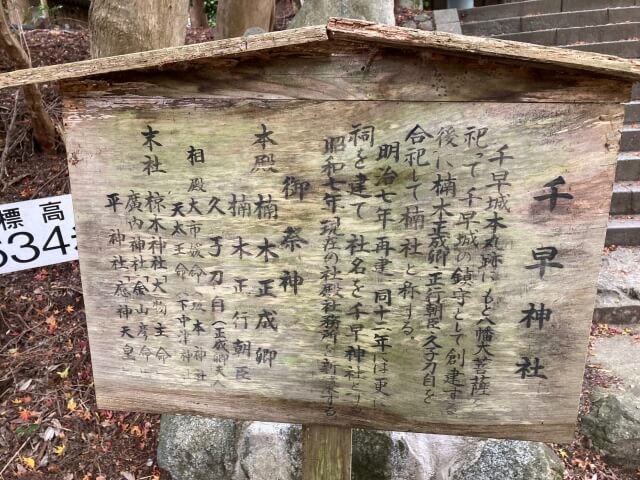 千早神社
千早城本丸跡にもと八幡大菩薩を
祀って千早城の鎮守として創建する
後に楠木正成卿 正行朝臣 久子刀自を
合祀して楠社と称する。
明治七年再建 同十二年には更に
祠を建て 社名を千早神社とする
昭和七年 現在の社殿社務所を新築する
御祭神
本殿 楠木正成卿
楠木正行朝臣
久子刀自(正成卿夫人)
相殿 大市媛命
天太玉命
末社 椋木神社
廣内神社
平神社
標高
634